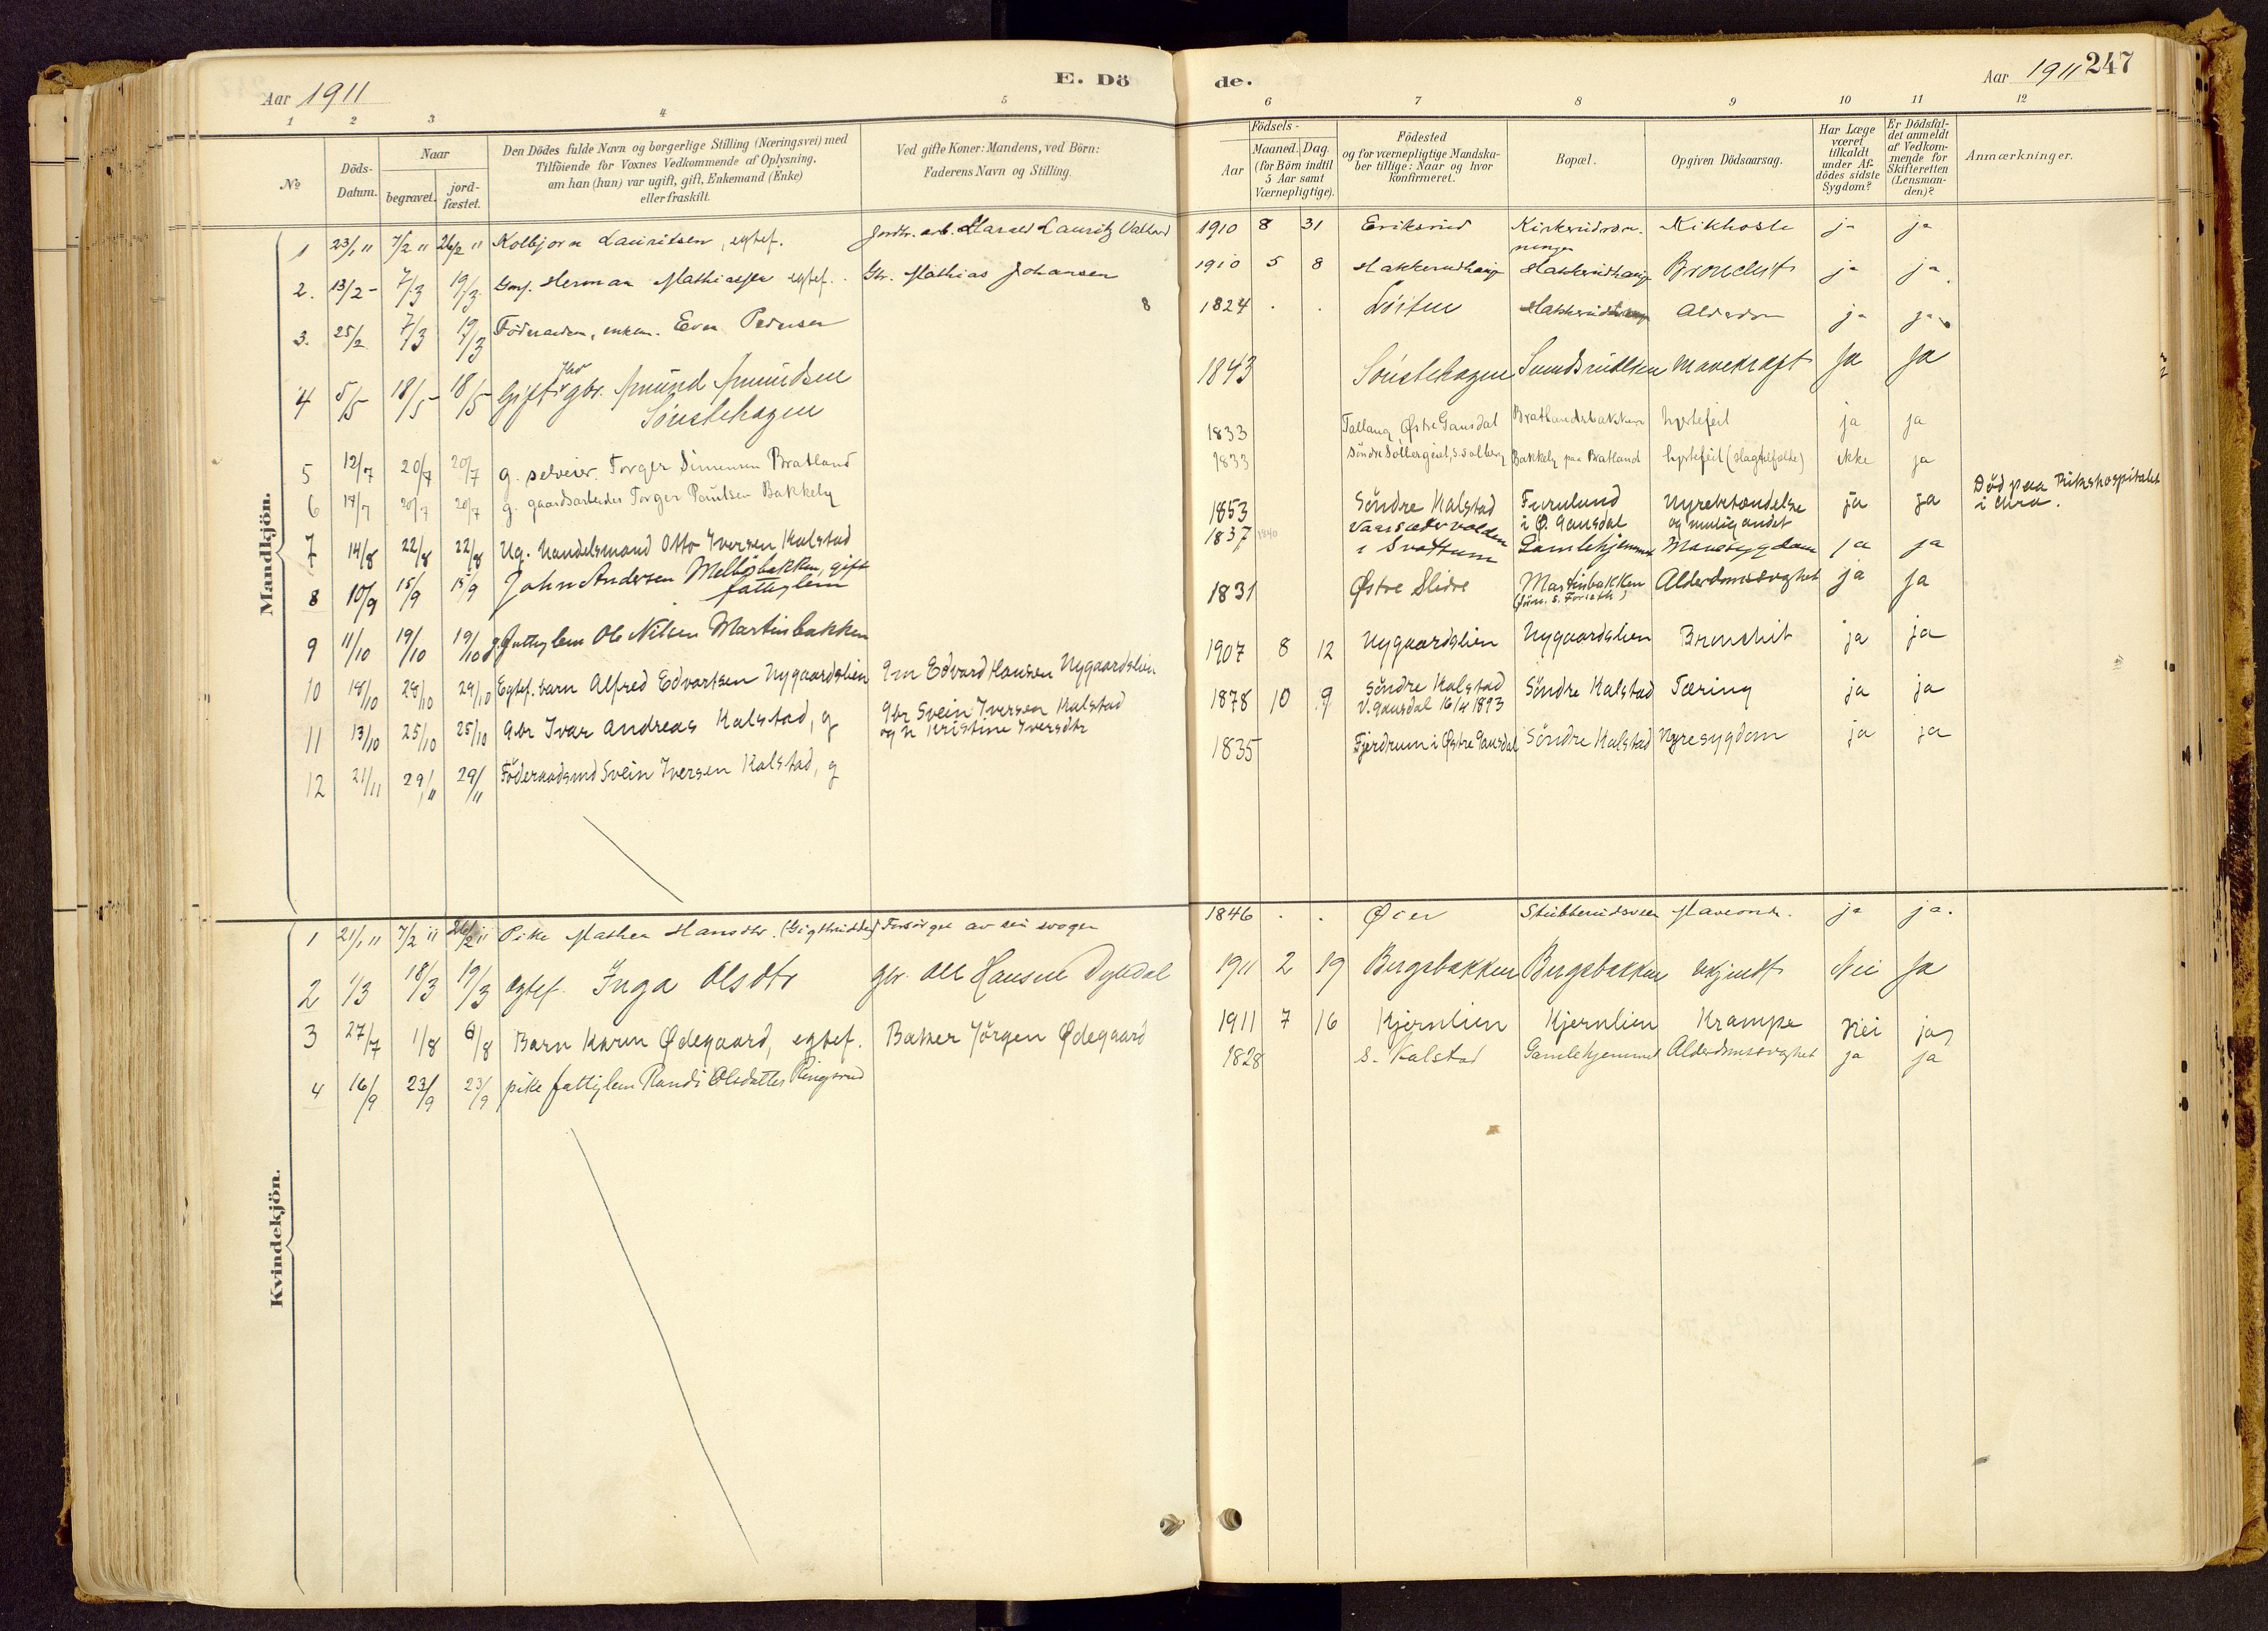 Aar 1911
E. Dö
de.
Aar 1911 247
1 2 3 4 5 6 7 8 9 10 11 12
No
Döds-Datum.
Naar
begravet.
jord-fæstet.
Den Dödes fulde Navn og borgerlige Stilling (Næringsvei) med
Tilföiende for Voxnes Vedkommende af Oplysning,
om han (hun) var ugift, gift, Enkemand (Enke)
eller fraskilt.
Ved gifte Koner: Mandens, ved Börn:
Faderens Navn og Stilling.
Födsels-
Aar
Maaned. Dag.
(for Börn indtil
5 Aar samt
Værnepligtige).
Födested
og for værnepligtige Mandska-
ber tillige: Naar og hvor
konfirmeret.
Bopæl.
Opgiven Dödsaarsag.
Har Læge
været
tilkaldt
under Af-
dödes sidste
Sygdom?
Er Dödsfal-
det anmeldt
af Vedkom-
mende for
Skifteretten
(Lensman-
den)?
Anmærkninger.
Mandkjön.
1 23/1 11 7/2 11 26/2 11 Kolbjørn Lauritsen, egtef. Jordbr. arb. Harald Lauritz 1910 8 31 Eriksrud Kikhoste ja ja
2. 13/2 - 7/3 19/3 Herman Mathiassen egtef. Gbr. Mathias Johansen 1910 5 8 Hakkerudhaug Hakkerudhaug Bronchit ja ja.
3. 25/2 7/3 19/3 Even Pedersen 8 1824 . . Löiten Alderdom ja ja
4 5/5 18/5 18/5 Gift gbr. Amund Amundsen
Sönstehagen 1843 Sönstehagen mavekræft ja ja
5 12/7 20/7 20/7 g. selveier Torger Simensen Bratland 1833 Østre Gausdal Bratlandsbakken hjertefeil ja ja
6 17/7 20/7 20/7 g. gaardsarbeider Torger Poulsen Bakkely 1833 Bakkely paa Bratland hjertefeil ikke ja
7 14/8 22/8 22/8 Ug. Handelsmand Otto Iversen Kalstad 1853 Söndre Kalstad Furulund
i Ø. Gausdal Nyrebetændelse
og mulig andet ja ja Död paa Rikshospitalet
i Chra.
8 10/9 15/9 15/9 John Andersen Melböbakken, gift
fattiglem 1837 1840
i Svattum Gamlehjemmet Mavesygdom ja ja
9 11/10 19/10 19/10 g. fattiglem Ole Nilsen Martinbakken 1831 Østre Slidre Martinbakken Alderdomssvaghet ja ja
10 18/10 28/10 29/10 Egtef. barn Alfred Edvartsen Nygaardslien Edvard Hansen Nygaardslien 1907 8 12 Nygaardslien Nygaardslien Bronchit ja ja
11 13/10 25/10 25/10 Gbr Ivar Andreas Kalstad, g Gbr Svein Iversen Kalstad
og h Kristine Iversdtr 1878 10 9 Söndre Kalstad
V. Gausdal 16/4 1893 Söndre Kalstad Tæring ja ja
12 21/11 29/11 29/11 Föderaadsmd Svein Iversen Kalstad, g 1835 Fjerdrum i Østre Gausdal Söndre Kalstad Nyresygdom ja ja
Kvindekjön.
1 21/1 11 7/2 11 26/2 11 Pike Mathea Hansdtr. Forsörges av sin svoger 1846 . . Öier ja ja.
2 1/3 18/3 19/3 egtef. Inga Olsdtr gbr. Ole Hansen 1911 2 19 Bergsbakken Bergsbakken ukjendt Nei Ja
3 27/7 1/8 6/8 Barn Karen Ødegaard, egtef. Baker Jörgen Ødegaard 1911 7 16 Kjernlien Kjernlien Krampe Nei ja
4 16/9 23/9 23/9 pike fattiglem Randi Olsdatter Ringsrud 1828 S. Kalstad Gamlehjemmet Alderdomssvaghet ja ja